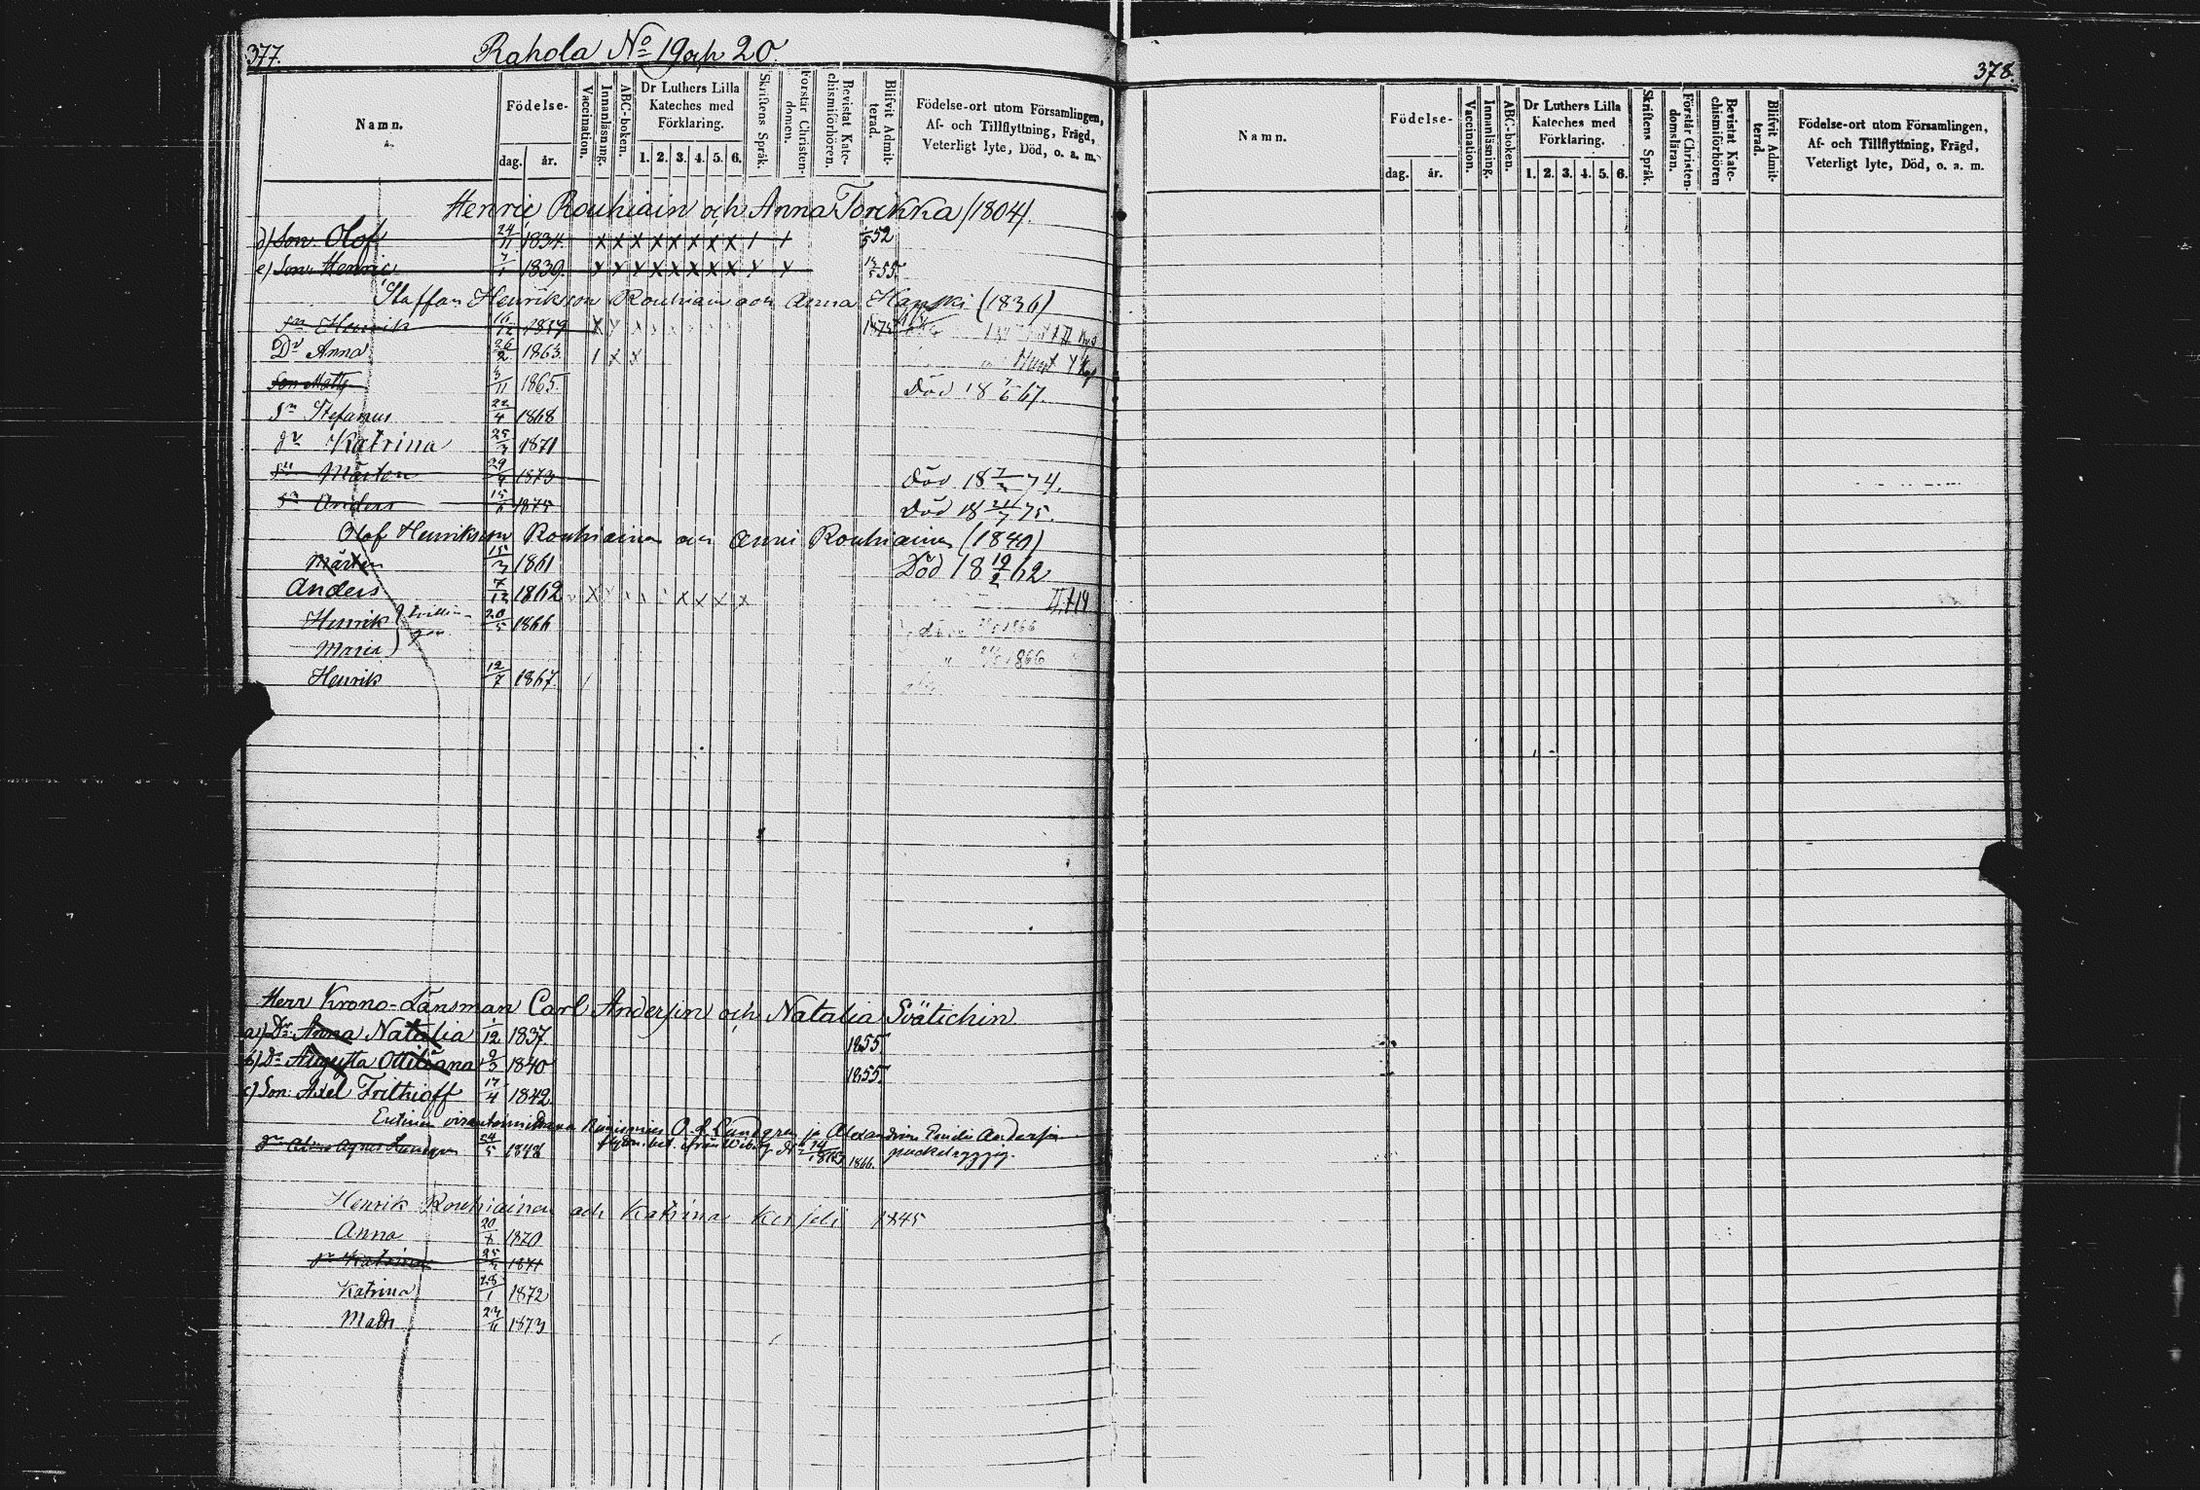 377.
Rahola No 19 och 20.
Namn.
Födelse-
dag. år.
Vaccination.
Innanläsning.
ABC-boken.
Dr Luthers Lilla Kateches med Förklaring.
1. 2. 3. 4. 5. 6.
Skriftens Språk.
Förstår Christendomen.
Bevistat Katechismiförhören.
Blifvit Admitterad.
Födelse-ort utom Församlingen,
Af- och Tillflyttning, Frägd,
Veterligt lyte, Död, o. a. m.
Henric Rouhiain och Anna Torikka (1804).
d) Son: Olof 24/11 1834. x x x x x x x x 1 1 52
e) Son: Henric 7/1 1839. x x x x x x x x x x 55.
Staffan Henriksson Rouhiain och Anna (1836)
Sn Henrik 16/12 1859 x
Dr Anna 26/2 1863 1 x x
Son Matts 3/11 1865. Död 18 67.
Sn Stefanus 22/4 1868
Dr Katrina 25/3 1871
Sn Mårten 29/9 1873 Död 18 74.
Sn Anders 15/6 1875 Död 18 75.
Olof Henriksson Rouhiainen och Anni Rouhiainen (1840)
Mårten 15/3 1861 Död 18 19/2 62
Anders 7/12 1862 x x x x x
Henrik 20/5 1866 1866
Maria 1866
Henrik 12/7 1867.
Herr Krono-Länsman Carl Andersin och Natalia Svätichin
a) Dr: Anna Natalia 1/12 1837. 1855.
b) Dr Augusta Ottiliana 9/3 1840 1855.
c) Son: Axel Frithioff 17/4 1842.
Lundgren ja Alexandrine Emilie Andersin
Dr Alma Agnes Lundgren 24/5 1848 1866.
Henrik Rouhiainen och Katrina 1845
Anna 20/8 1870
Dr Katrina 1871
Katrina 28/1 1872
Matts 23/11 1873
378.
Namn.
Födelse-
dag. år.
Vaccination.
Innanläsning.
ABC-boken.
Dr Luthers Lilla Kateches med Förklaring.
1. 2. 3. 4. 5. 6.
Skriftens Språk.
Förstår Christendomsläran.
Bevistat Katechismiförhören
Blifvit Admitterad.
Födelse-ort utom Församlingen,
Af- och Tillflyttning, Frägd,
Veterligt lyte, Död, o. a. m.